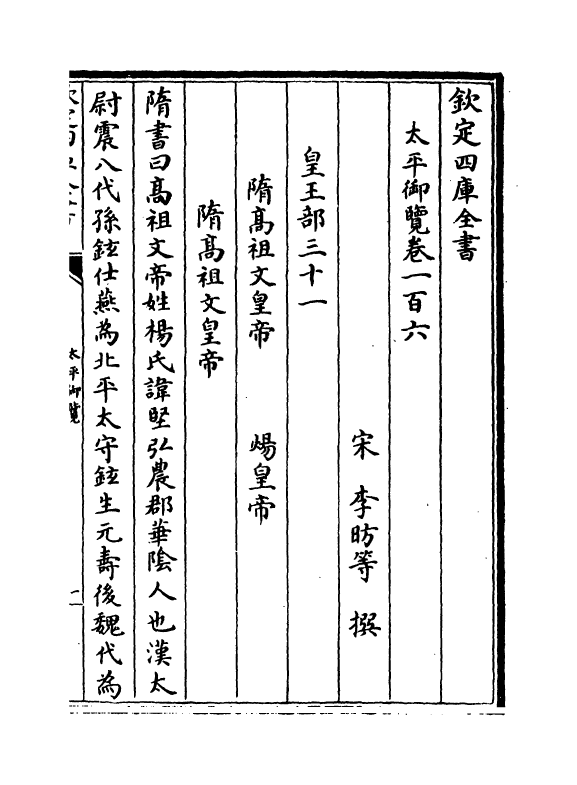 欽定四庫全書
太平御覽卷一百六
宋 李昉等 撰
皇王部三十一
隋髙祖文皇帝 煬皇帝
隋髙祖文皇帝
隋書曰髙祖文帝姓楊氏諱堅弘農郡華陰人也漢太
尉震八代孫鉉仕燕為北平太守鉉生元壽後魏代為
太平御覽